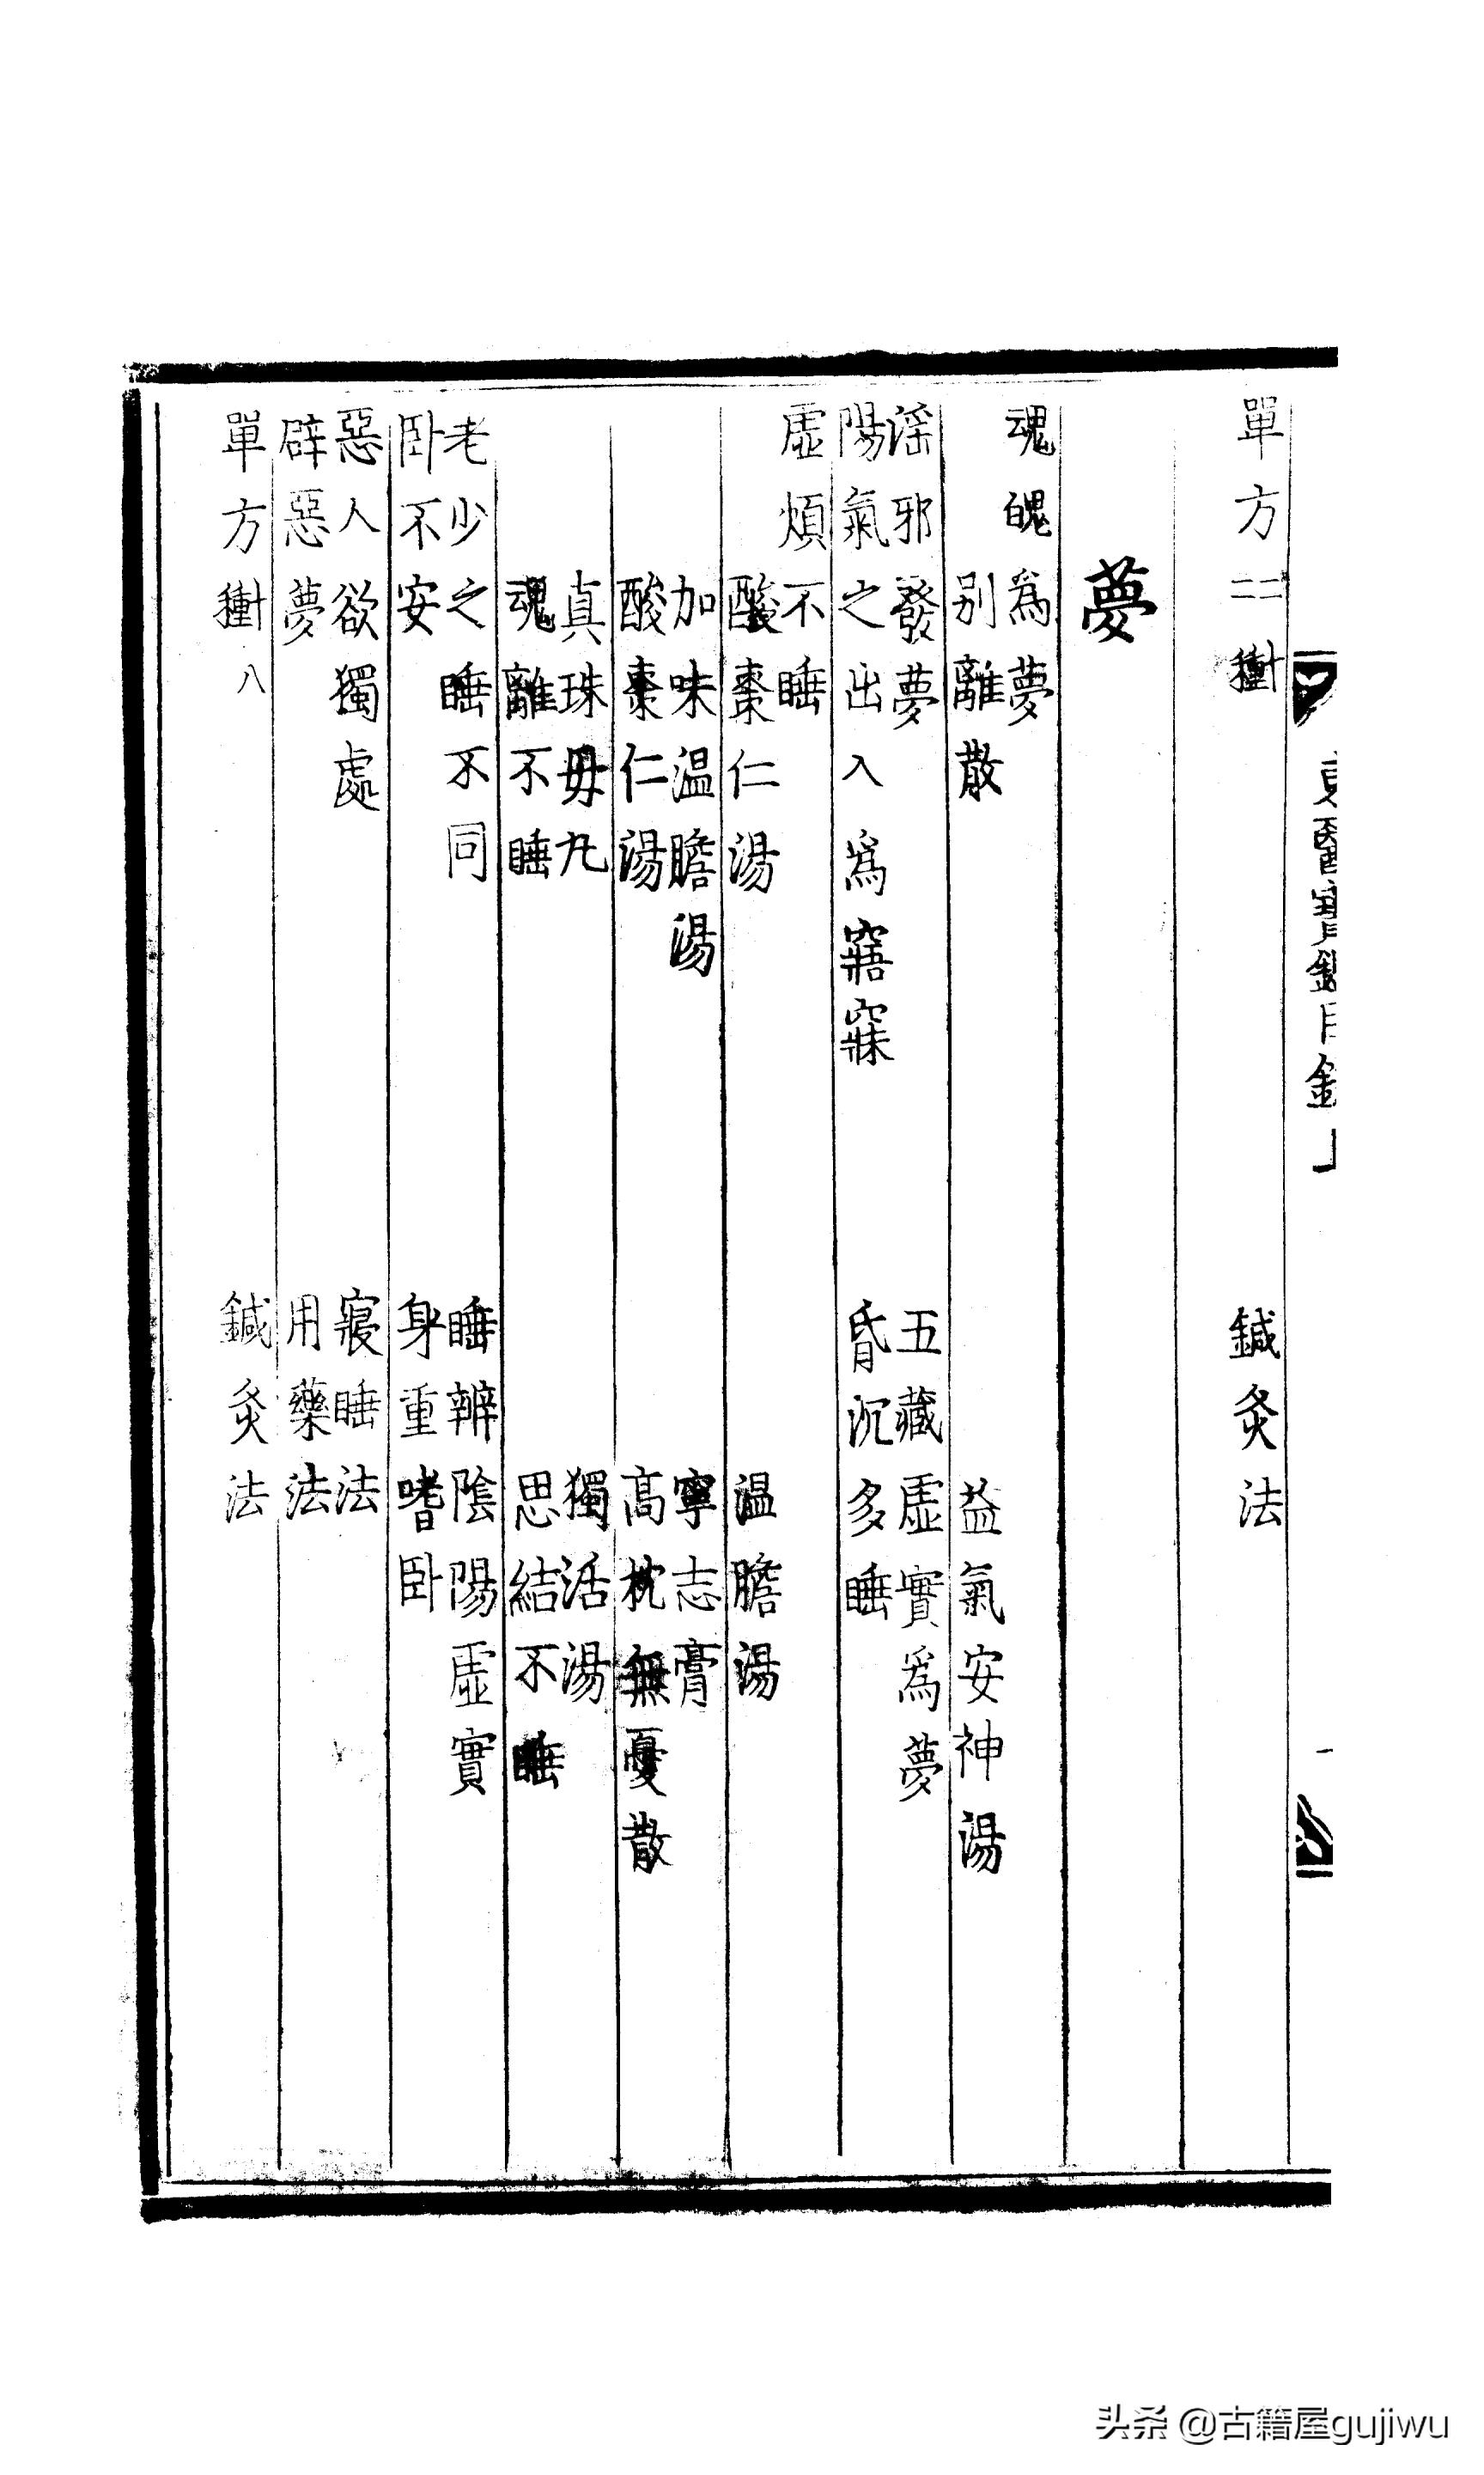 東醫寶鑑目錄上
一
單方二十二種　鍼灸法
夢
魂魄爲夢
別離散　益氣安神湯
淫邪發夢　五藏虛實爲夢
陽氣之出入爲寤寐　昏沉多睡
虛煩不睡
酸棗仁湯　温膽湯
加味温膽湯　寧志膏
酸棗仁湯　高枕無憂散
真珠母丸　獨活湯
魂離不睡　思結不睡
老少之睡不同　睡辨陰陽虛實
卧不安　身重嗜卧
惡人欲獨處　寢睡法
辟惡夢　用藥法
單方十八種　鍼灸法
头条 @古籍屋gujiwu